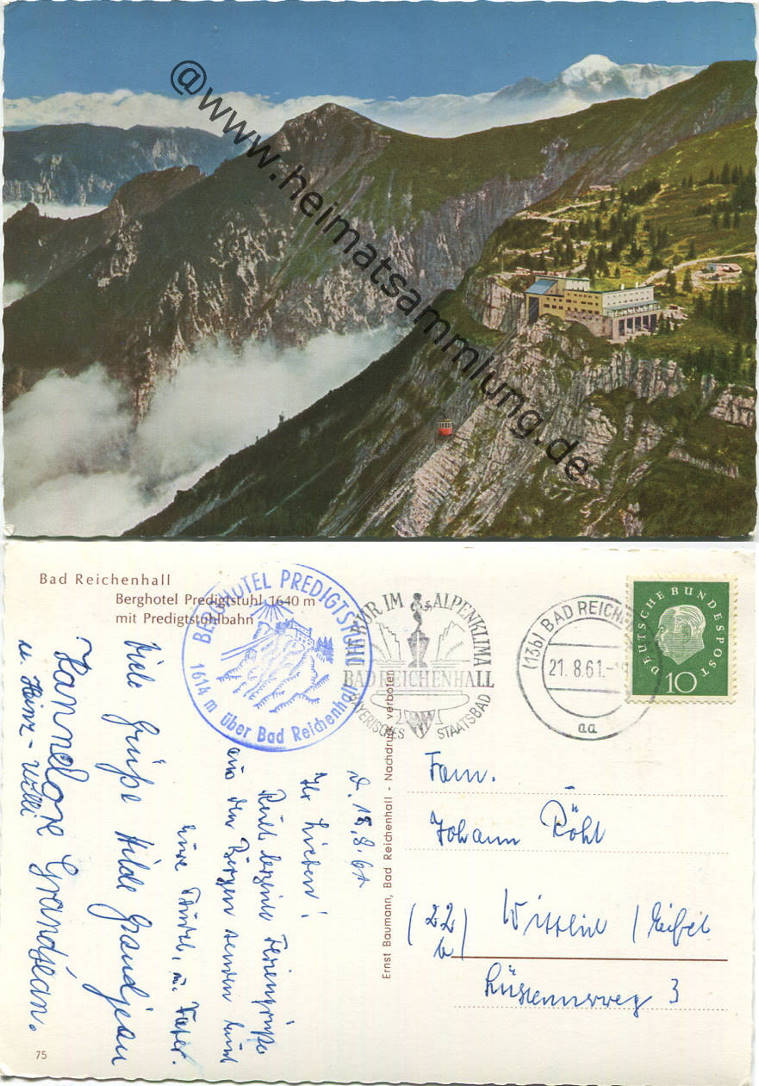 @www.heimatsammlung.de
Bad Reichenhall
Berghotel Predigtstuhl 1640 m
mit Predigtstuhlbahn
BERGHOTEL PREDIGTSTUHL
1614 m über Bad Reichenhall
KUR IM ALPENKLIMA
BAD REICHENHALL
BAYERISCHES STAATSBAD
(13b) BAD REICHEN
21.8.61.-
aa
DEUTSCHE BUNDESPOST
10
d. 18.8.61
Ihr Lieben!
Recht herzliche Feriengrüße
aus den Bergen senden Euch
Eure
u.
Viele Grüße Hilde Grandjean
Hannelore Grandjean.
u. Heinz-Willi
Fam.
Johann Röhl
(22b) Wittlich / Eifel
3
Ernst Baumann, Bad Reichenhall - Nachdruck verboten
75